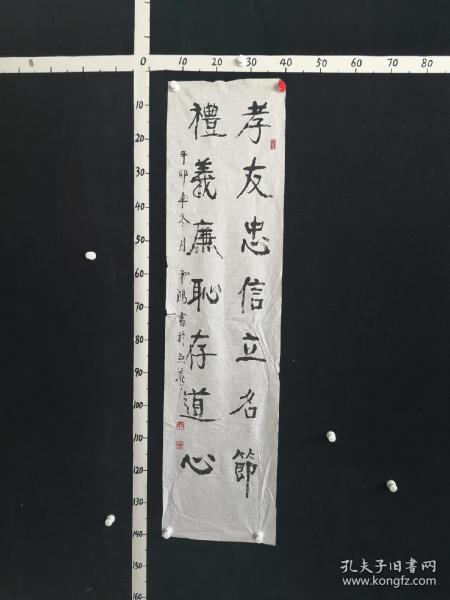 孝友忠信立名節
禮義廉恥存道心
辛卯年冬月和鴻書於
0 10 20 30 40 50 60 70 80
0
10
20
30
40
50
60
70
80
90
100
110
120
130
140
150
160
孔夫子旧书网
www.kongfz.com